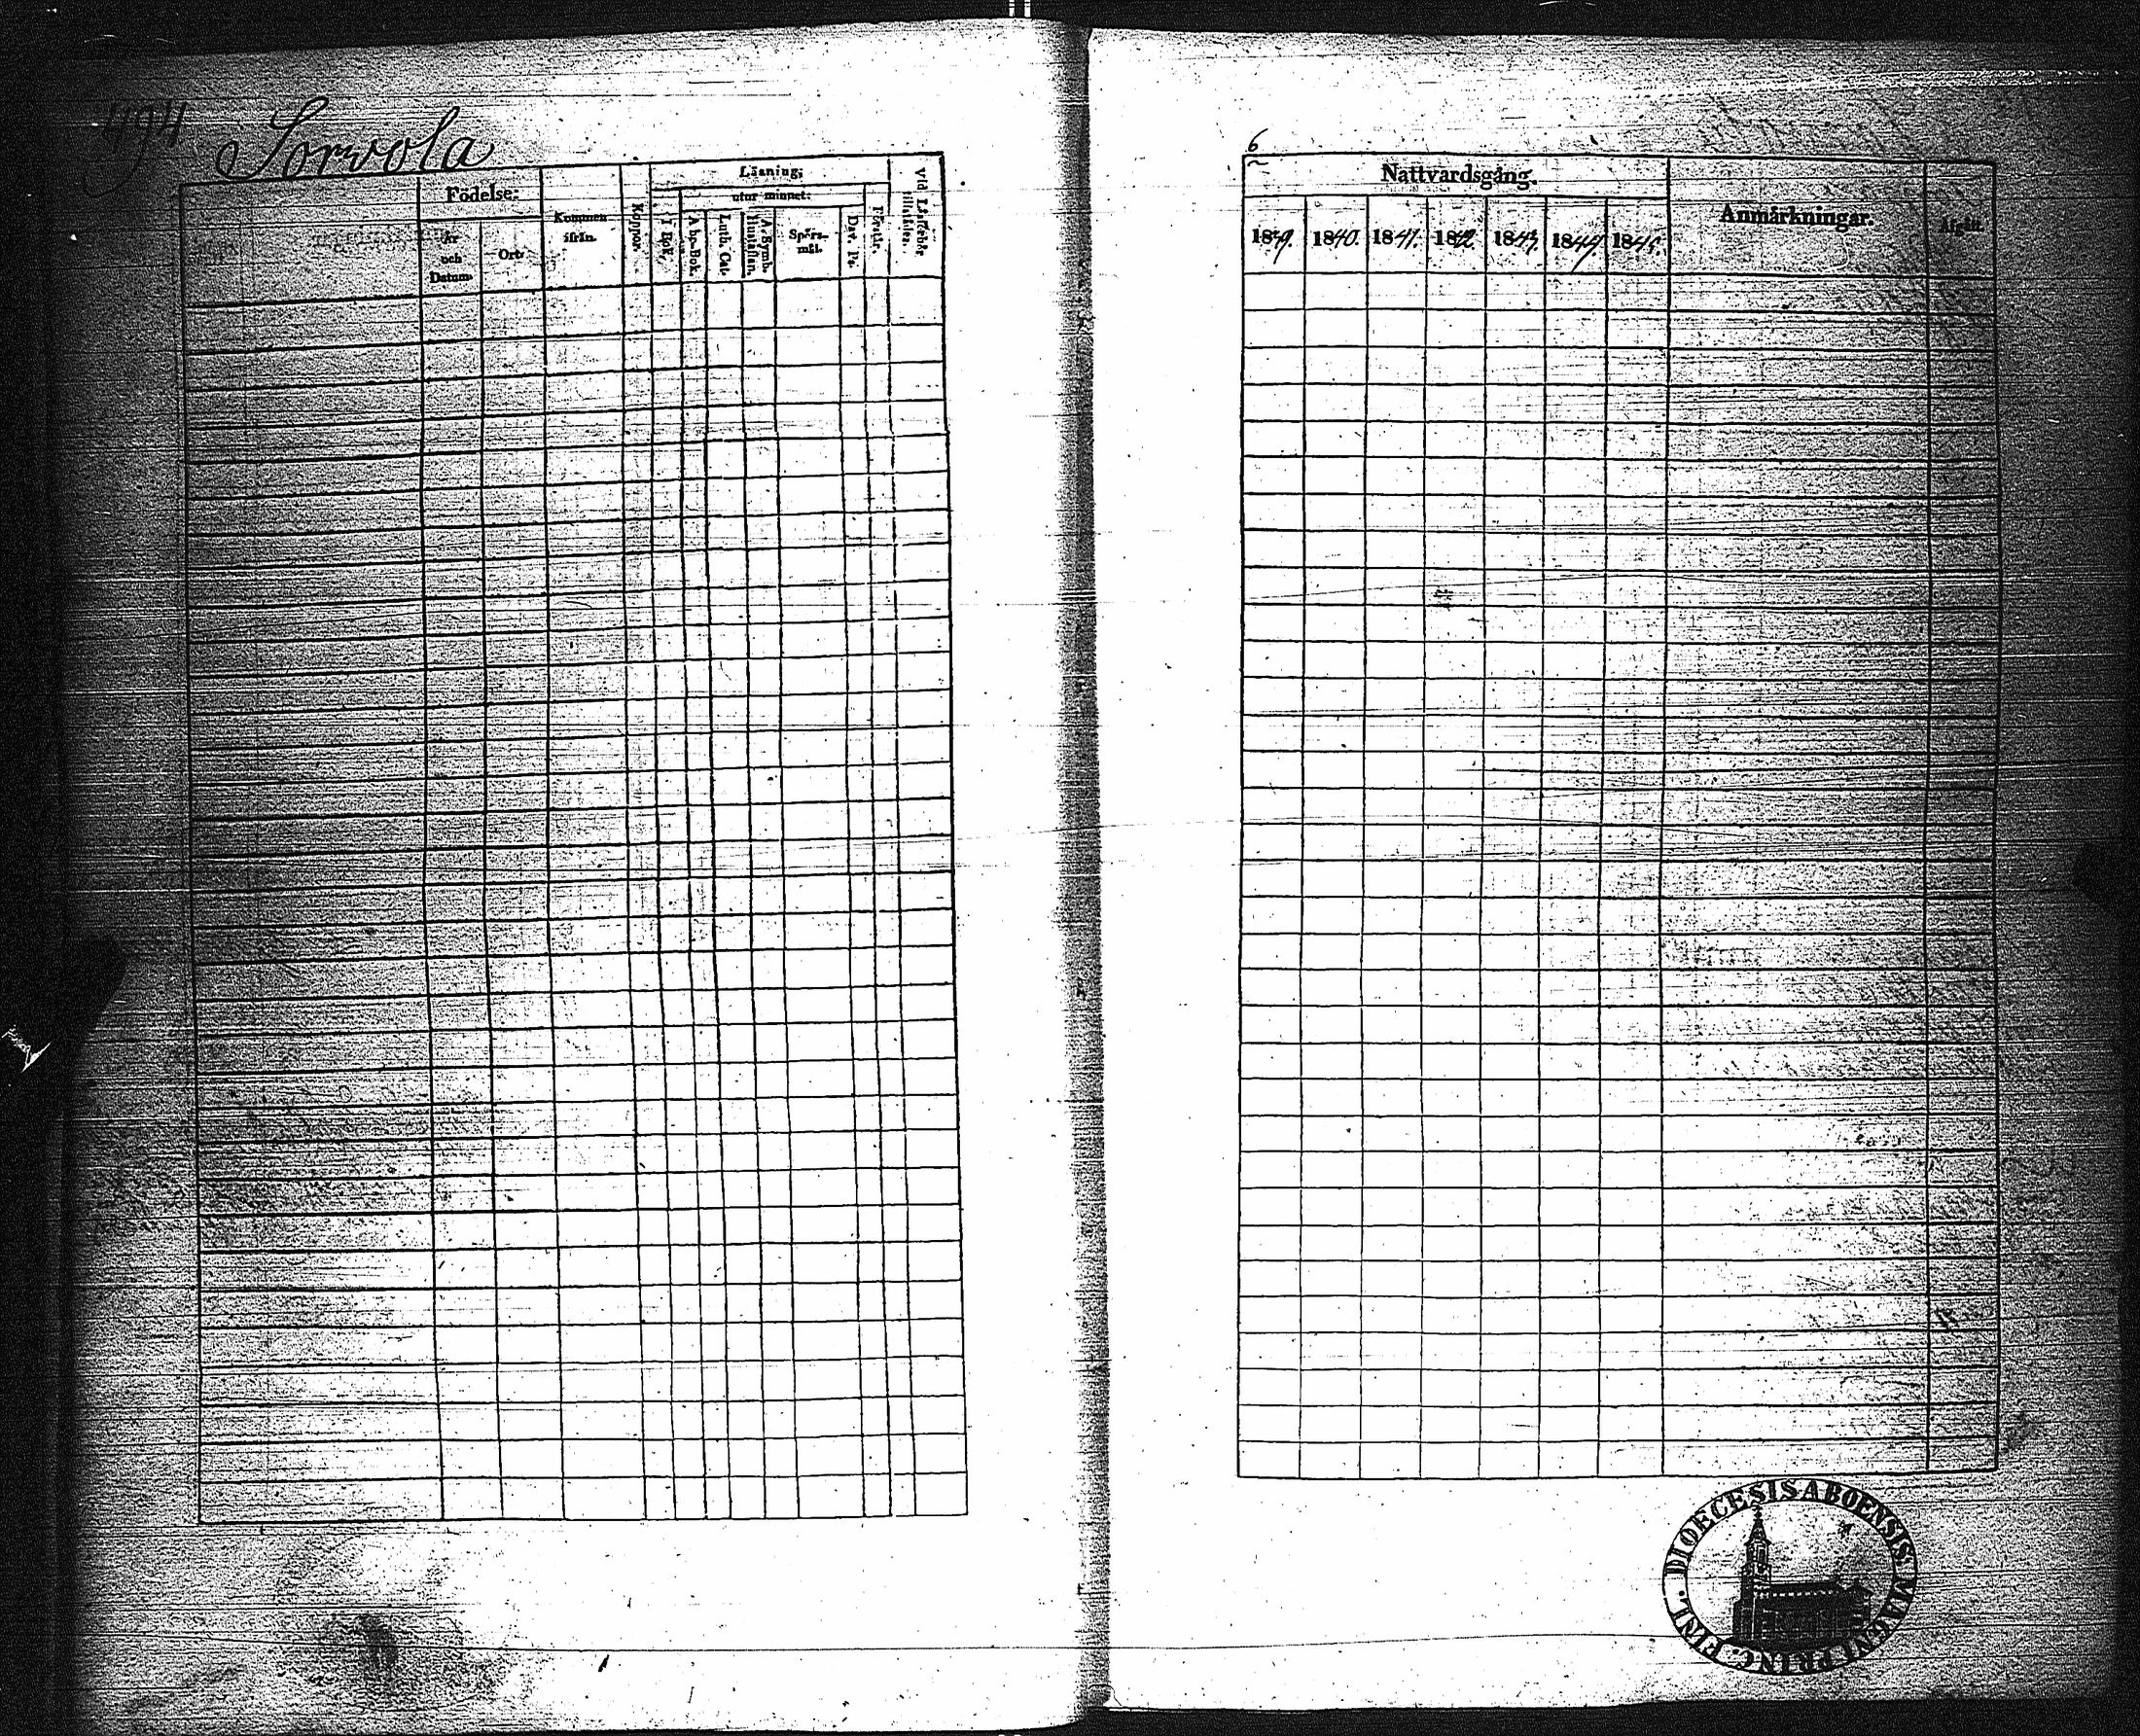 494
Sorvola
Födelse:
År och Datum.
Ort.
Kommen ifrån.
Koppor.
Läsning;
I Bok.
utur minnet:
A bc-Bok.
Luth. Cat.
A. Symb. Hustaflan.
Spörs-mål.
Dav. Ps.
Förstår.
Vid Läseförhör tillstädes.
6
Nattvardsgång.
1839.
1840.
1841.
1842
1843.
1844.
1845.
Anmärkningar.
Afgått.
DIOECESIS ABOENSIS. MAGNI PRINC. FINL.